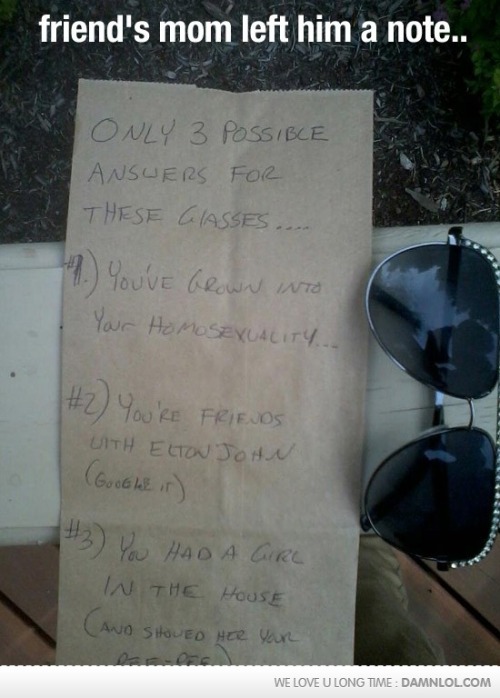 friend's mom left him a note..
ONLY 3 POSSIBLE
ANSWERS FOR
THESE GLASSES....
#1.) YOU'VE GROWN INTO
YOUR HOMOSEXUALITY...
#2) YOU'RE FRIENDS
WITH ELTON JOHN
(GOOGLE IT)
#3) YOU HAD A GIRL
IN THE HOUSE
(AND SHOWED HER YOUR
WE LOVE U LONG TIME : DAMNLOL.COM